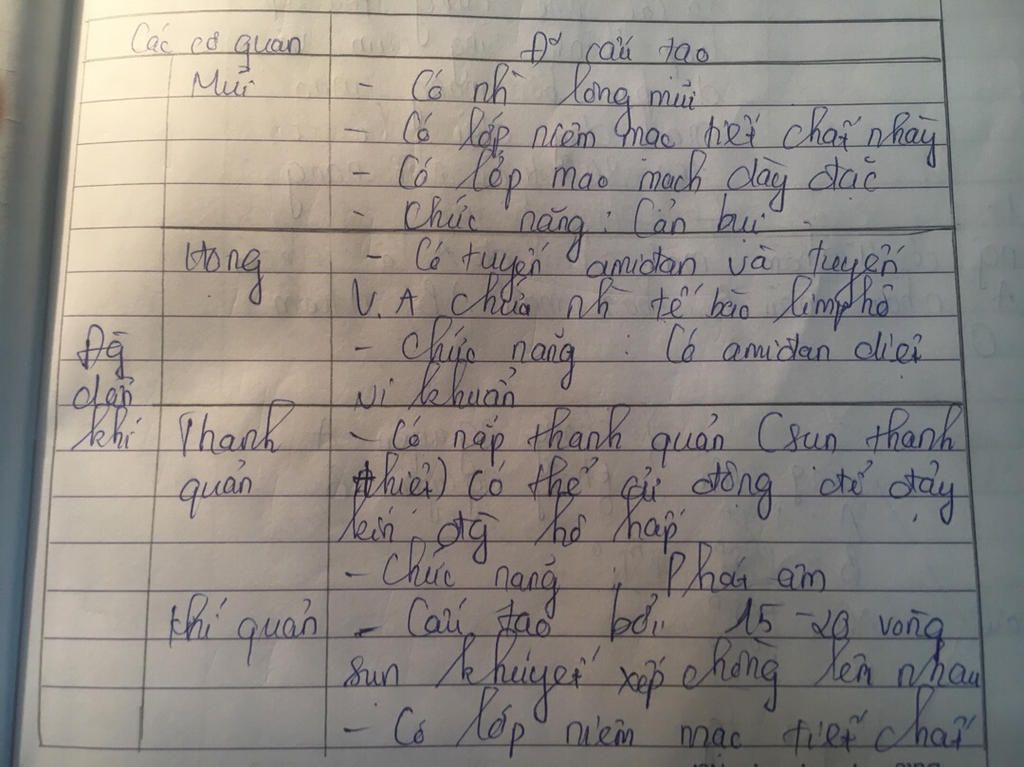 Các cơ quan Đ² cấu tạo
Mũi - Có nh` lông mũi
- Có lớp niêm mạc tiết chất nhày
- Có lớp mao mạch dày đặc
- Chức năng : Cản bụi
Họng - Có tuyến amiđan và tuyến
V.A chứa nh` tế bào limphô
Đg - Chức năng : Có amiđan diệt
dẫn vi khuẩn
khí Thanh - Có nắp thanh quản (sụn thanh
quản thiệt) có thể cử động để đậy
kín đg hô hấp
- Chức năng : Phát âm
Khí quản - Cấu tạo bởi 15-20 vòng
sụn khuyết xếp chồng lên nhau
- Có lớp niêm mạc tiết chất